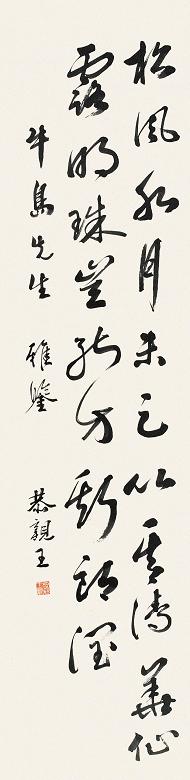 松風水月未足比其清華仙
露明珠豈能方斯朗潤
牛島先生 雅鑒
恭親王